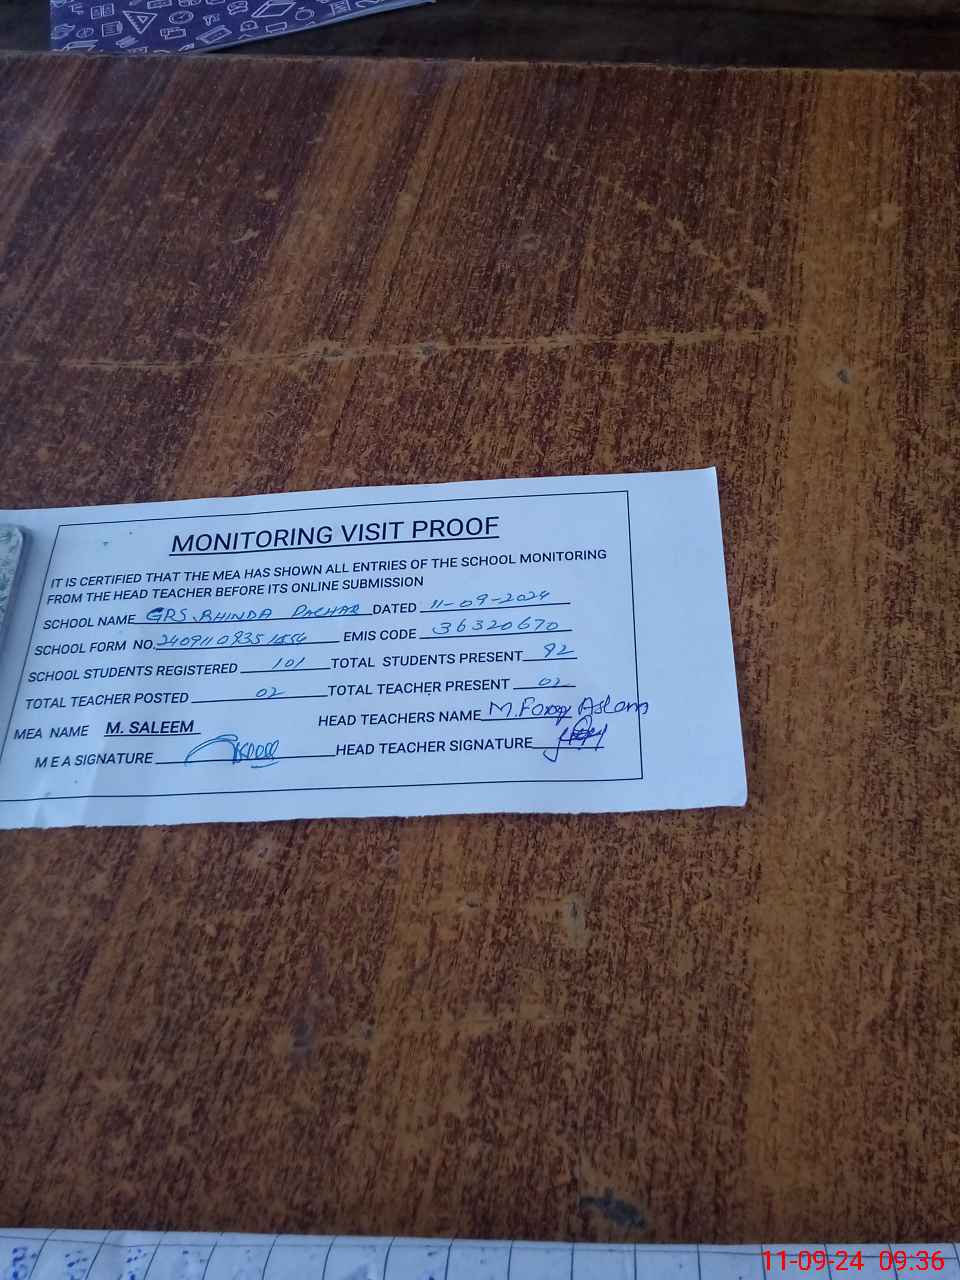 MONITORING VISIT PROOF
IT IS CERTIFIED THAT THE MEA HAS SHOWN ALL ENTRIES OF THE SCHOOL MONITORING
FROM THE HEAD TEACHER BEFORE ITS ONLINE SUBMISSION
SCHOOL NAME GPS BHINDA DACHAR DATED 11-09-2024
SCHOOL FORM NO. EMIS CODE 36320670
SCHOOL STUDENTS REGISTERED 101 TOTAL STUDENTS PRESENT 92
TOTAL TEACHER POSTED 02 TOTAL TEACHER PRESENT 02
MEA NAME M. SALEEM HEAD TEACHERS NAME M. Farooq Aslam
M E A SIGNATURE HEAD TEACHER SIGNATURE
11-09-24 09.36